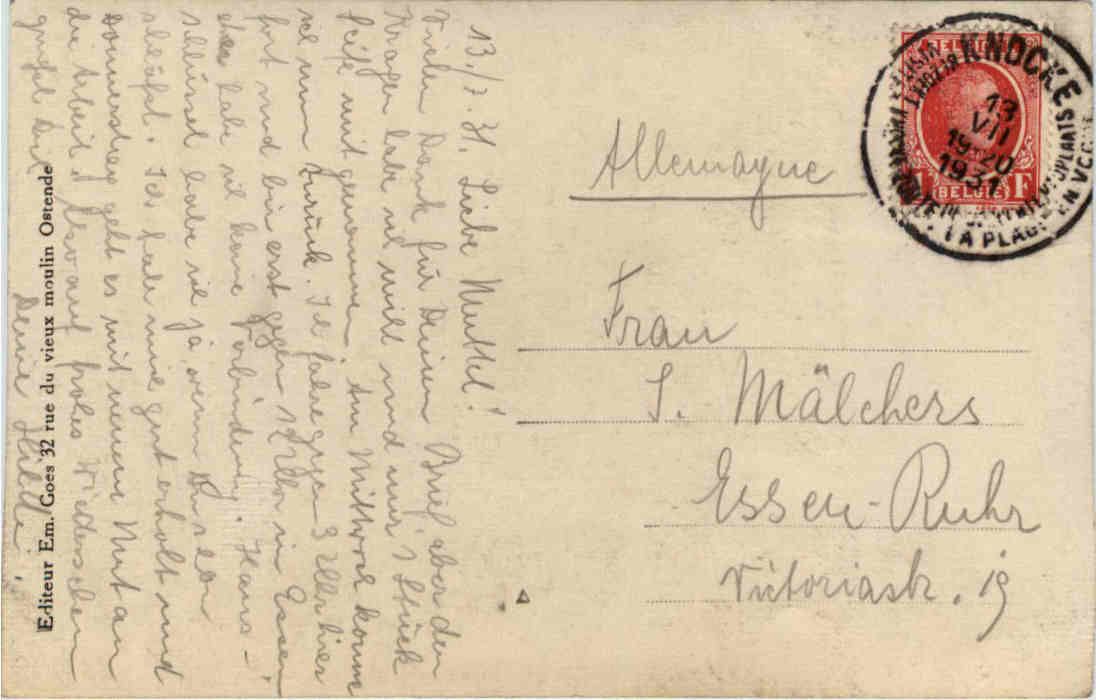 13./7. 31. Liebe Mutter!
Vielen Dank für Deinen Brief, aber den
Kragen habe ich nicht und nur 1 Stück
Seife mitgenommen. Am Mittwoch komme
ich nun zurück. Ich fahre gegen 3 Uhr hier
fort und bin erst gegen Uhr in Essen,
eher habe ich keine Verbindung. Haus-
schlüssel habe ich ja, wenn Du schon
schläfst. Ich habe mich gut erholt und
Donnerstag geht es mit neuem Mut an
die Arbeit. Also auf frohes Wiedersehen
grüßt Dich
Deine
Editeur Em. Goes 32 rue du vieux moulin Ostende
BELGIQUE
1 F
(BELGIE)
KNOCKE
13
VII
19-20
1931
LA PLAGE EN VOGUE
Allemagne
Frau
S. Mälchers
Essen-Ruhr
Victoriastr. 19